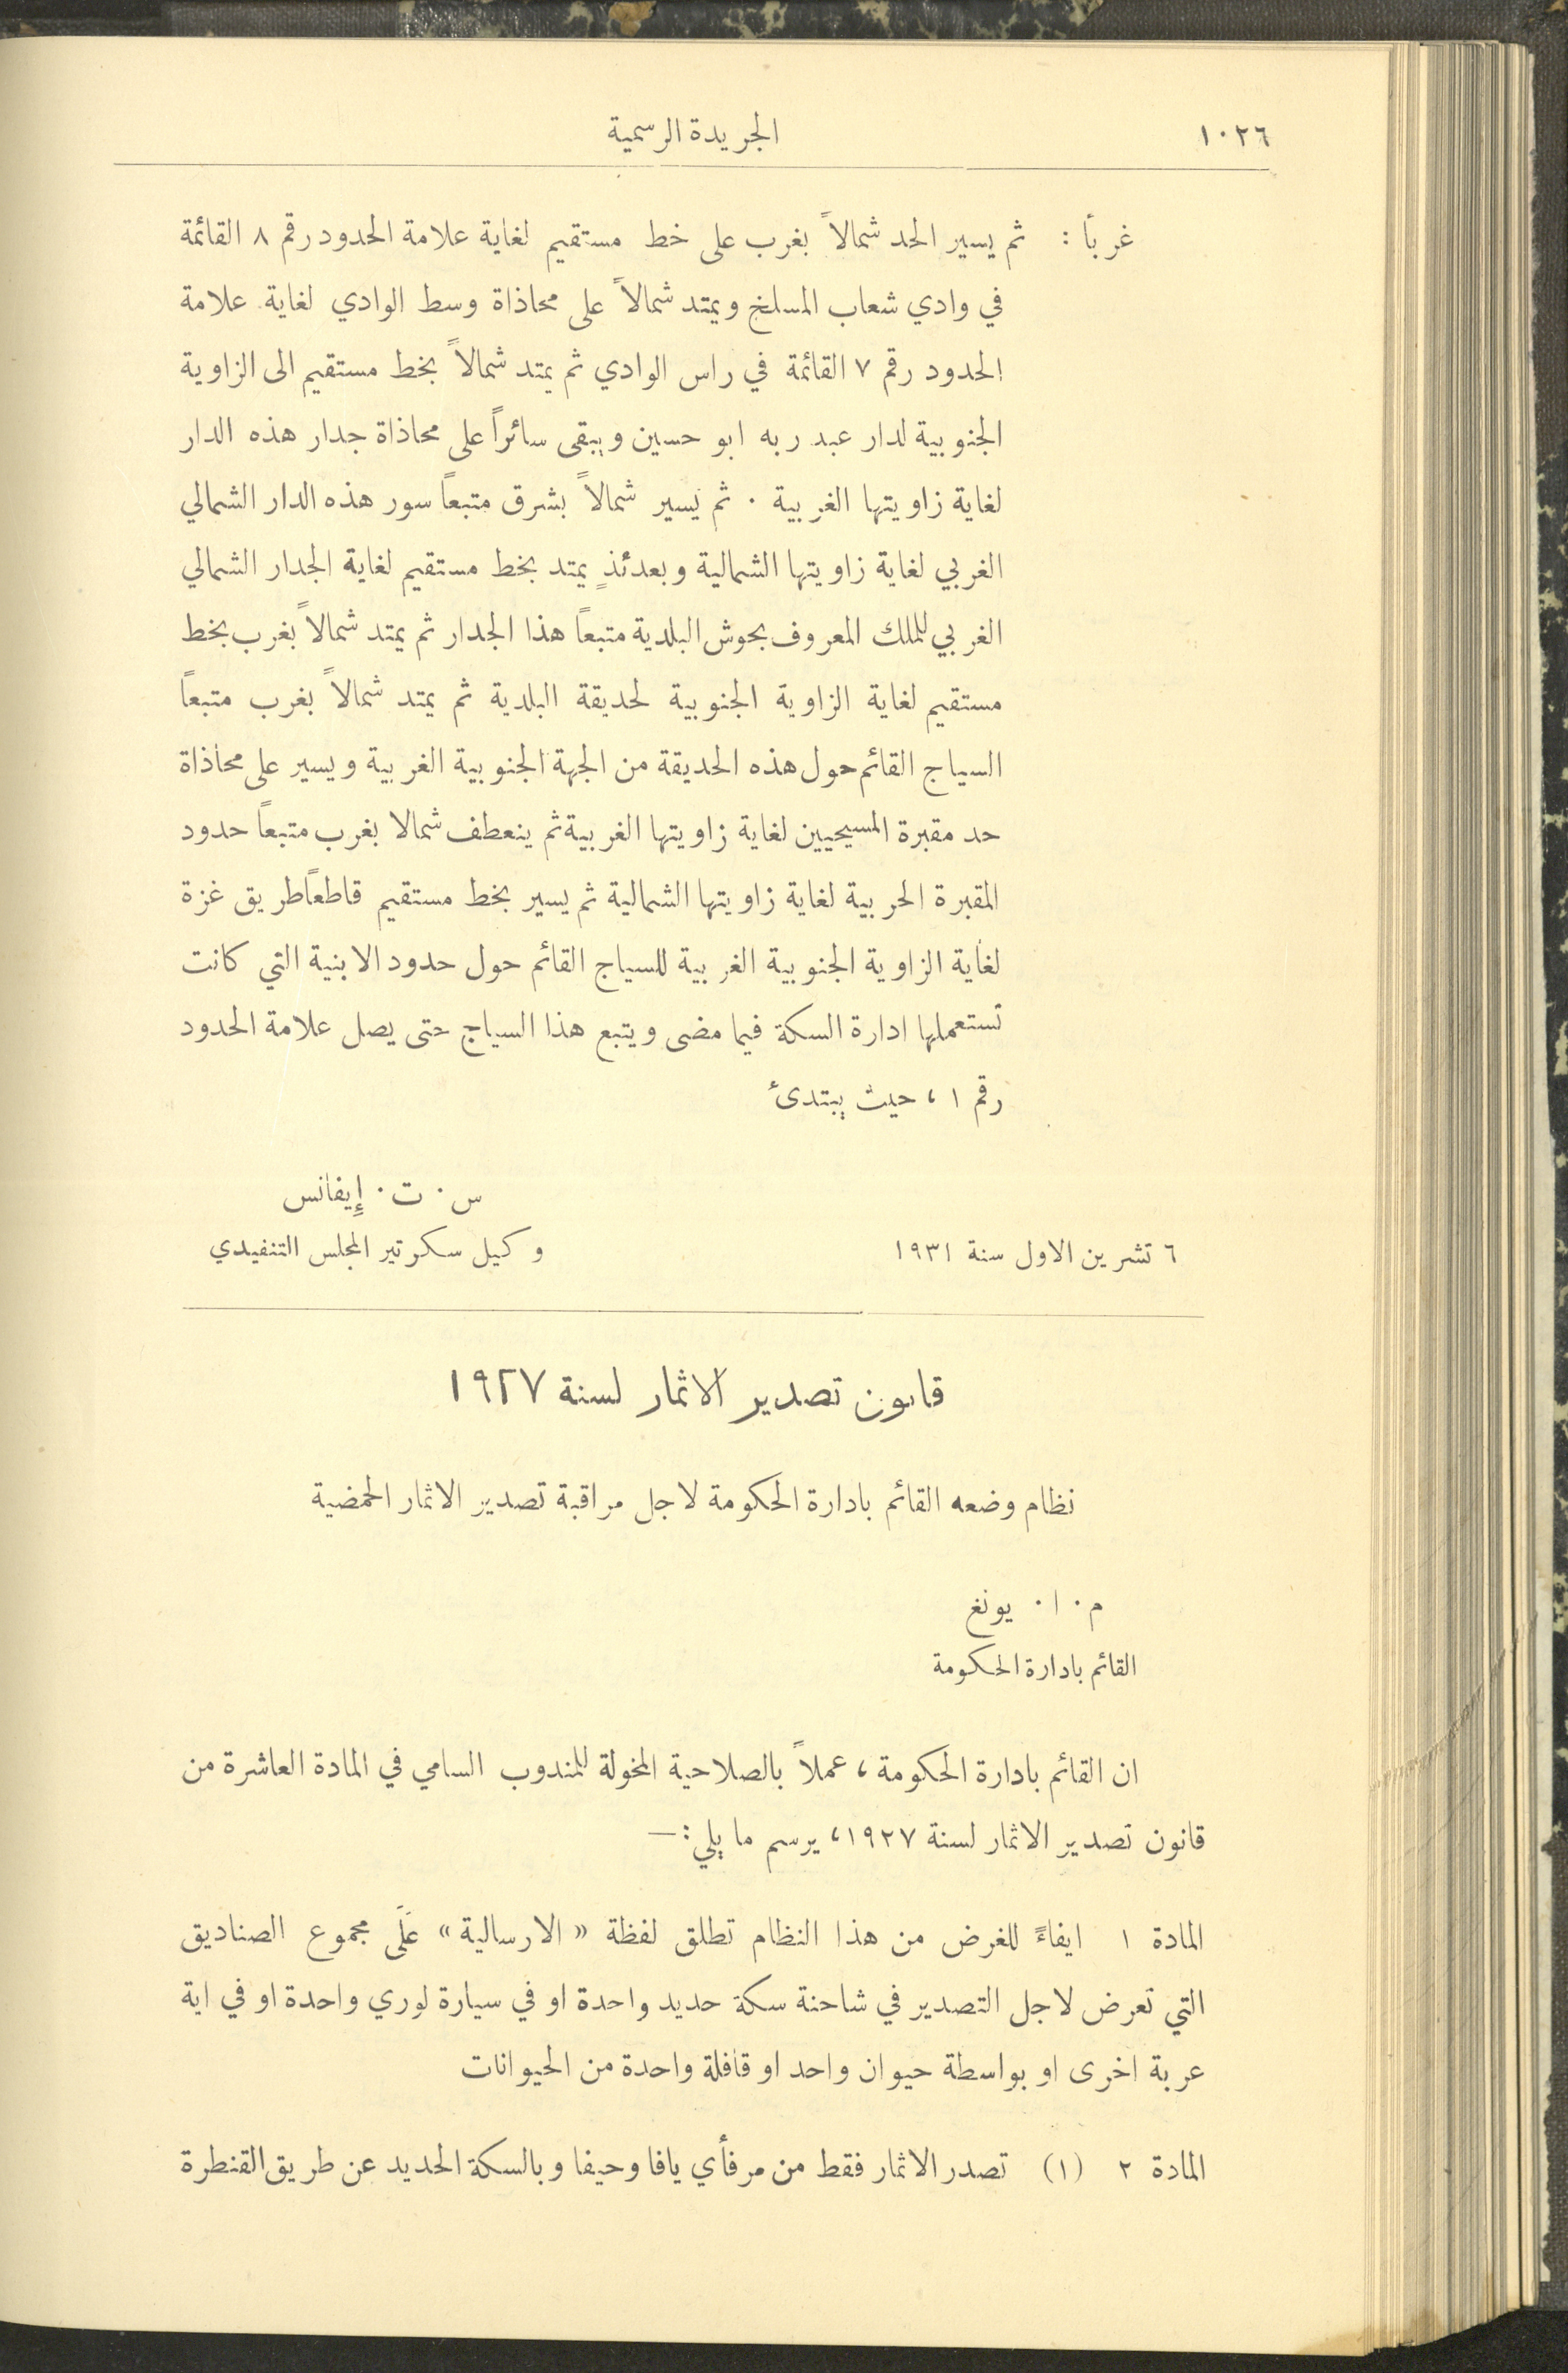 ١٠٢٦
الجريدة الرسمية
غرباً : ثم يسير الحد شمالاً بغرب على خط مستقيم لغاية علامة الحدود رقم ٨ القائمة
في وادي شعاب المسلخ ويمتد شمالاً على محاذاة وسط الوادي لغاية علامة
الحدود رقم ٧ القائمة في راس الوادي ثم يمتد شمالاً بخط مستقيم الى الزاوية
الجنوبية لدار عبد ربه ابو حسين ويبقى سائراً على محاذاة جدار هذه الدار
لغاية زاويتها الغربية . ثم يسير شمالاً بشرق متبعاً سور هذه الدار الشمالي
الغربي لغاية زاويتها الشمالية وبعدئذٍ يمتد بخط مستقيم لغاية الجدار الشمالي
الغربي للملك المعروف بحوش البلدية متبعاً هذا الجدار ثم يمتد شمالاً بغرب بخط
مستقيم لغاية الزاوية الجنوبية لحديقة البلدية ثم يمتد شمالاً بغرب متبعاً
السياج القائم حول هذه الحديقة من الجهة الجنوبية الغربية ويسير على محاذاة
حد مقبرة المسيحيين لغاية زاويتها الغربية ثم ينعطف شمالا بغرب متبعاً حدود
المقبرة الحربية لغاية زاويتها الشمالية ثم يسير بخط مستقيم قاطعاً طريق غزة
لغاية الزاوية الجنوبية الغربية للسياج القائم حول حدود الابنية التي كانت
تستعملها ادارة السكة فيما مضى ويتبع هذا السياج حتى يصل علامة الحدود
رقم ١ ، حيث يبتدئ
س . ت . إيفانس
٦ تشرين الاول سنة ١٩٣١ وكيل سكرتير المجلس التنفيدي
قانون تصدير الاثمار لسنة ١٩٢٧
نظام وضعه القائم بادارة الحكومة لاجل مراقبة تصدير الاثمار الحمضية
م . ا . يونغ
القائم بادارة الحكومة
ان القائم بادارة الحكومة ، عملاً بالصلاحية المخولة للمندوب السامي في المادة العاشرة من
قانون تصدير الاثمار لسنة ١٩٢٧، يرسم ما يلي :—
المادة ١ ايفاءً للغرض من هذا النظام تطلق لفظة « الارسالية » عَلَى مجموع الصناديق
التي تعرض لاجل التصدير في شاحنة سكة حديد واحدة او في سيارة لوري واحدة او في اية
عربة اخرى او بواسطة حيوان واحد او قافلة واحدة من الحيوانات
المادة ٢ (١) تصدر الاثمار فقط من مرفأي يافا وحيفا وبالسكة الحديد عن طريق القنطرة